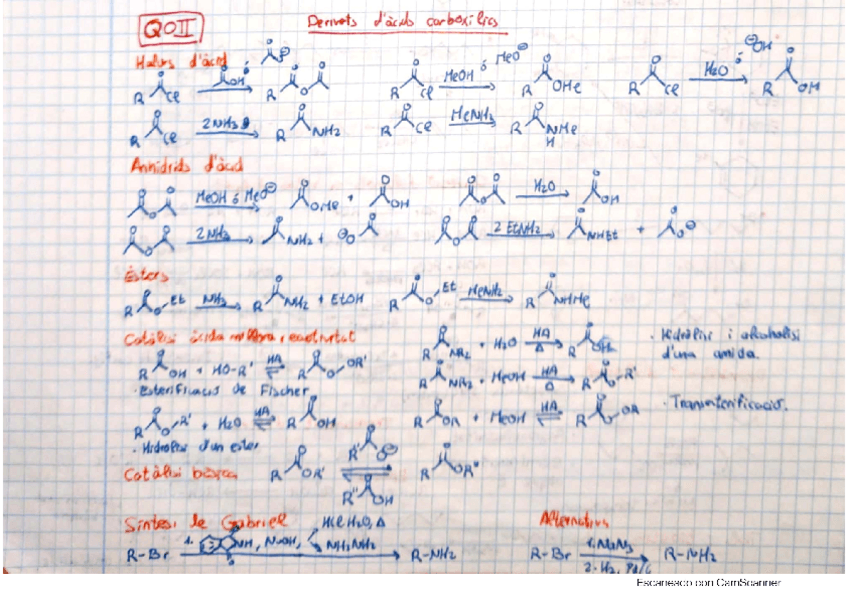 QOII
Derivats d'àcids carboxílics
Halurs d'àcid
R Cl → OH ó O⊖ → R O O
R Cl → MeOH ó MeO⊖ → R OMe
R Cl → H2O ó ⊖OH → R OH
R Cl → 2NH3 → R NH2
R Cl → MeNH2 → R NMe H
Anhídrids d'àcid
O → MeOH ó MeO⊖ → OMe + OH
O → H2O → OH
O → 2NH3 → NH2 + ⊖O
O → 2 EtNH2 → NHEt + O⊖
Èsters
R O Et → NH3 → R NH2 + EtOH
R O Et → MeNH2 → R NHMe
Catàlisi àcida millora reactivitat
R OH + HO-R' ⇌ HA R O OR'
· Esterificació de Fischer
R O R' + H2O ⇌ HA R OH
· Hidròlisi d'un ester
R NR2 + H2O → HA Δ R OH
R NR2 + MeOH → HA Δ R O R'
· Hidròlisi i alcoholisi
d'una amida.
R OR + MeOH ⇌ HA R O OR
· Transesterificació.
Catàlisi bàsica
R OR' ⇌ R' O⊖ R'' OH R OR''
Síntesi de Gabriel
R-Br → 1. NH, NaOH, HCl H2O, Δ NH2NH2 → R-NH2
Alternativa
R-Br → 1. NaN3 2. H2, Pd/C → R-NH2
Escaneado con CamScanner